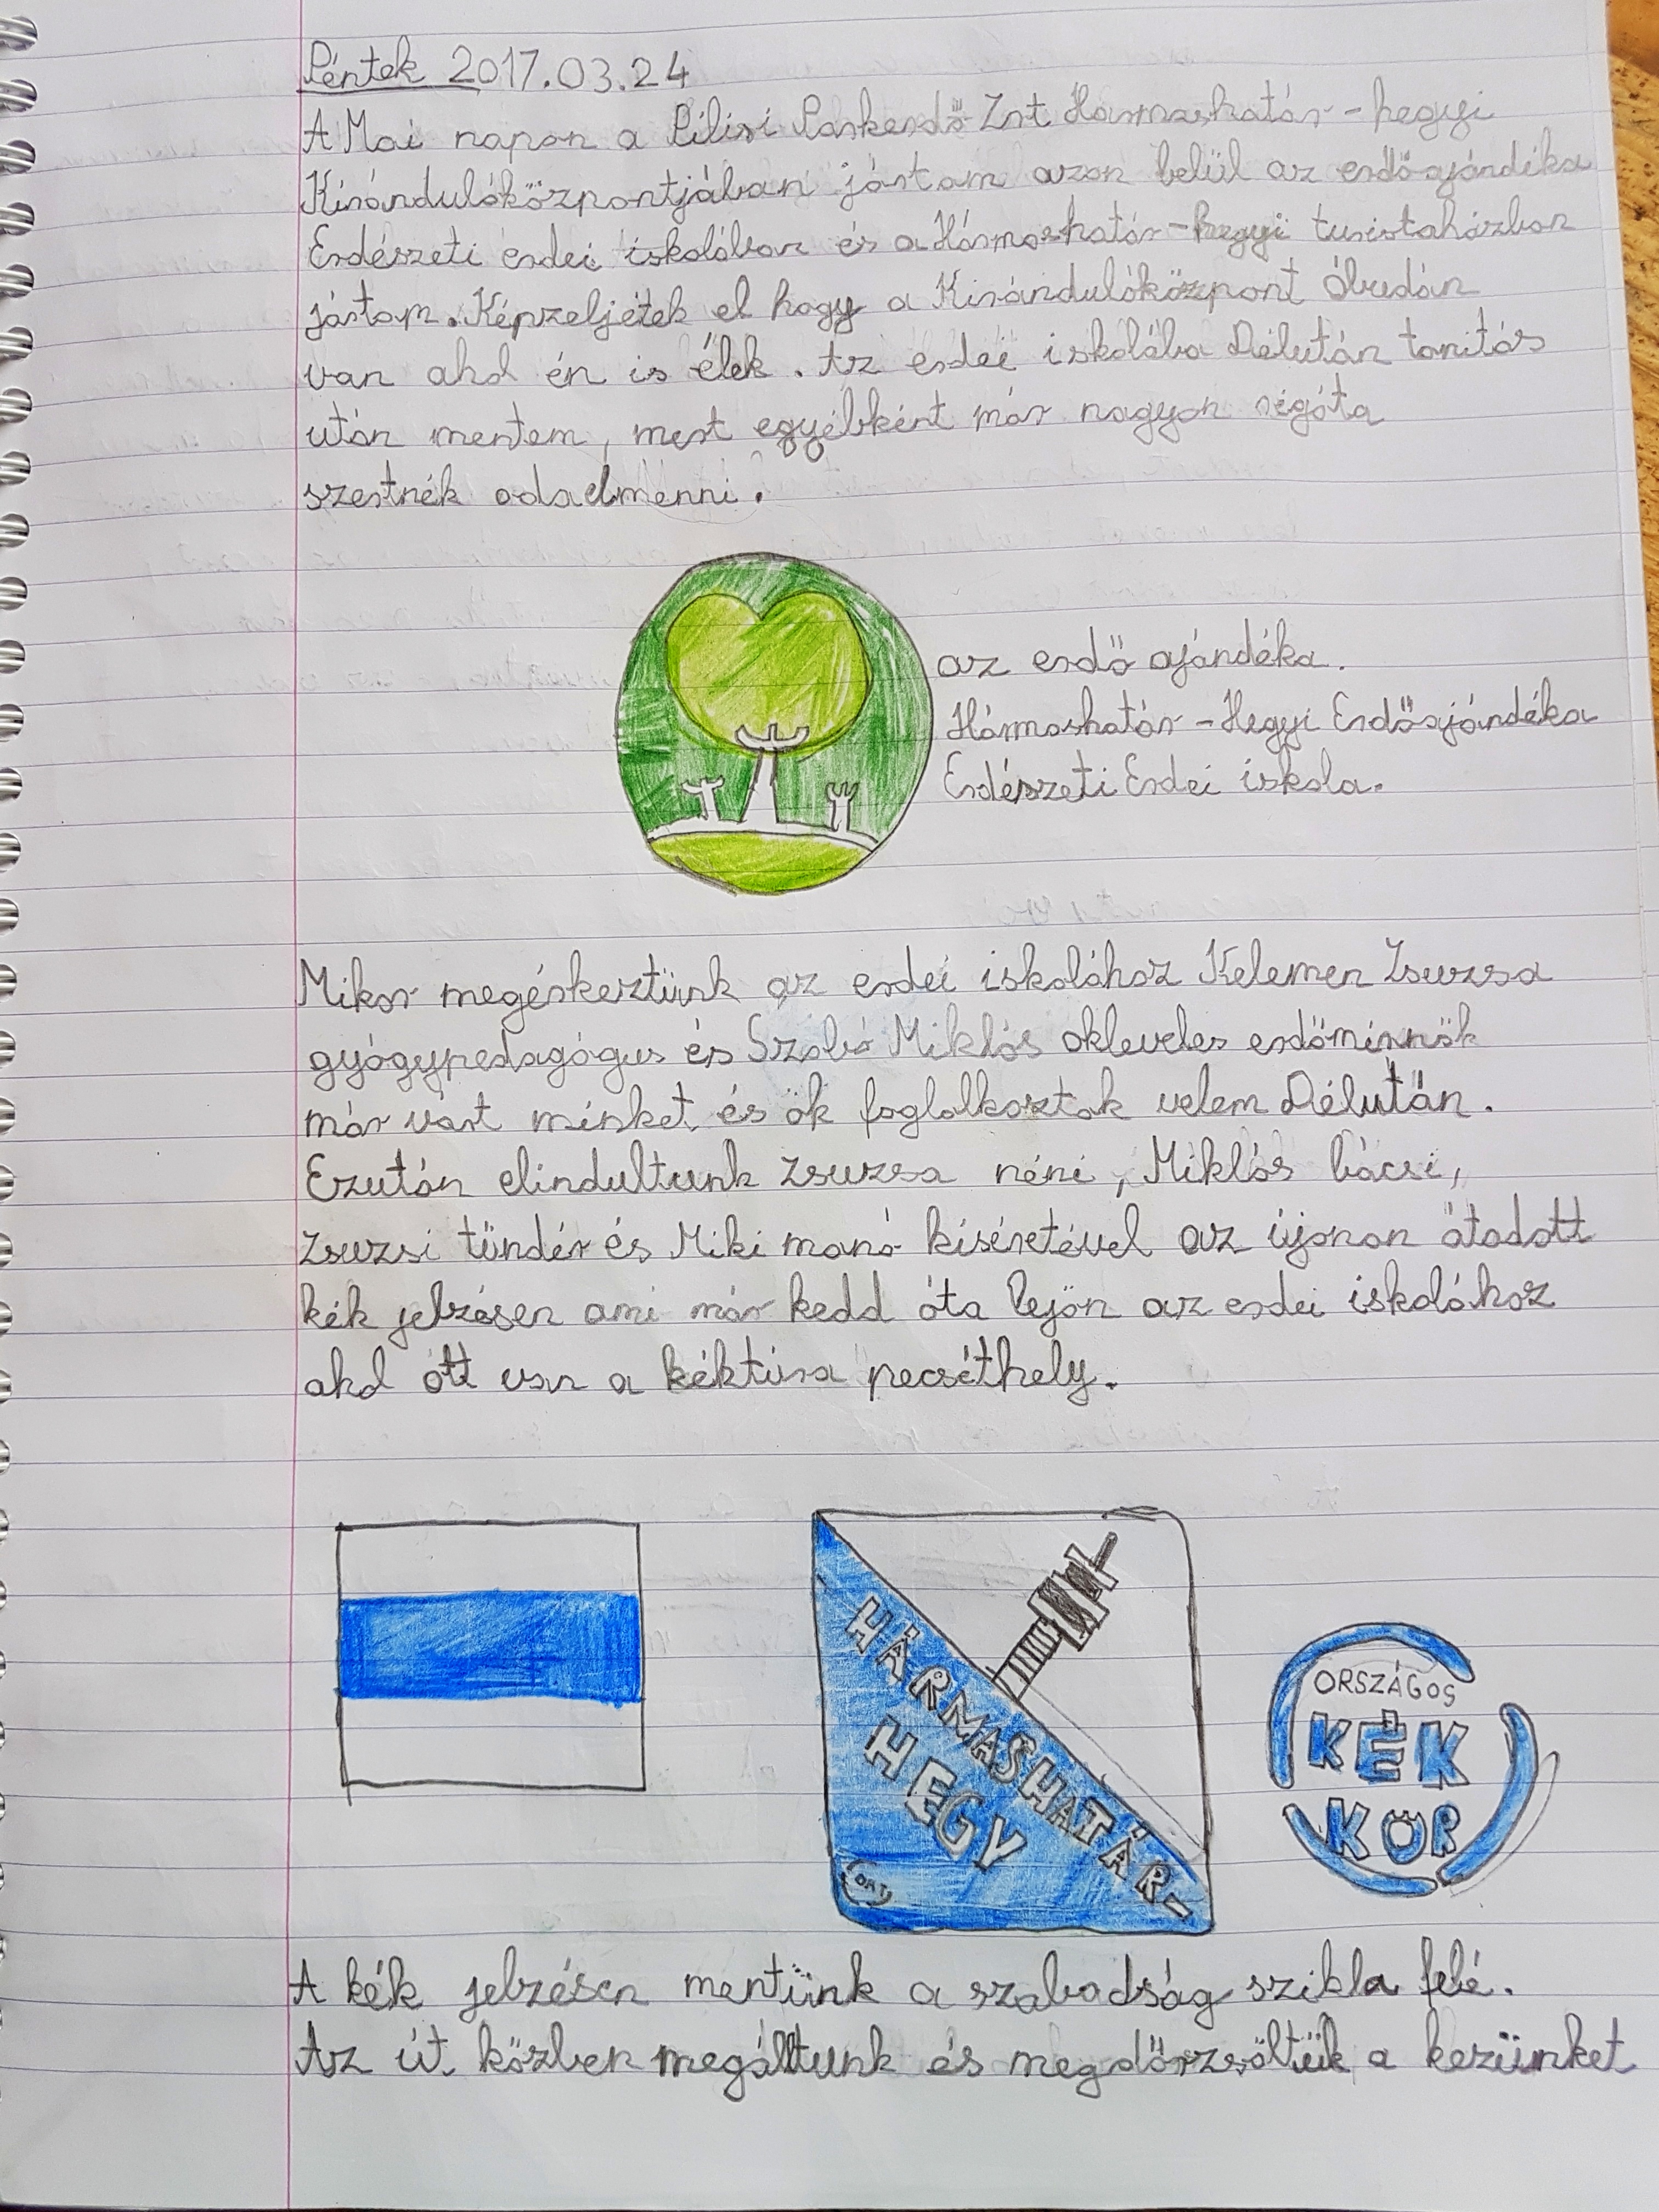 Péntek 2017.03.24
A Mai napon a Pilisi Parkerdő Zrt. Hármashatár-hegyi
Kirándulóközpontjában jártam azon belül az erdő ajándéka
Erdészeti erdei iskolában és a Hármashatár-hegyi turistaházban
jártam. Képzeljétek el hogy a Kirándulóközpont Óbudán
van ahol én is élek. Az erdei iskolába Délután tanitás
után mentem, mert egyébként már nagyon régóta
szertnék oda elmenni.
az erdő ajándéka.
Hármashatár-Hegyi Erdőajándéka
Erdészeti Erdei iskola.
Mikor megérkeztünk az erdei iskolához Kelemen Zsuzsa
gyógypedagógus és Szabó Miklós okleveles erdőmérnök
már várt minket és ők foglalkoztak velem Délután.
Ezután elindultunk Zsuzsa néni, Miklós bácsi,
Zsuzsi tündér és Miki manó kiséretével az újonan átadott
kék jelzésen ami már kedd óta lejön az erdei iskolához
ahol ott van a kéktúra pecséthely.
HÁRMASHATÁR-
HEGY
ORSZÁGOS
KÉK
KÖR
A kék jelzésen mentünk a szabadság szikla felé.
Az út közben megálltunk és megdörzsöltük a kezünket